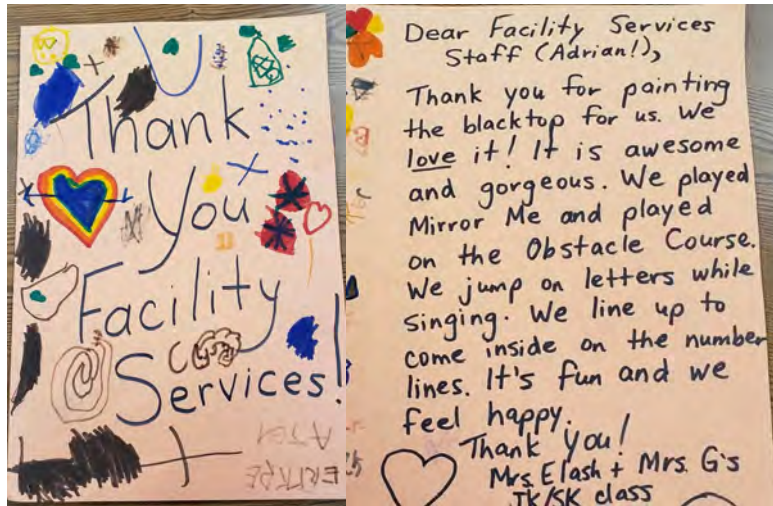 Thank
You
Facility
Services!
Dear Facility Services
Staff (Adrian!),
Thank you for painting
the blacktop for us. We
love it! It is awesome
and gorgeous. We played
Mirror Me and played
on the Obstacle Course.
We jump on letters while
singing. We line up to
come inside on the number
lines. It's fun and we
feel happy.
Thank you!
Mrs. Elash + Mrs. G's
JK/SK class